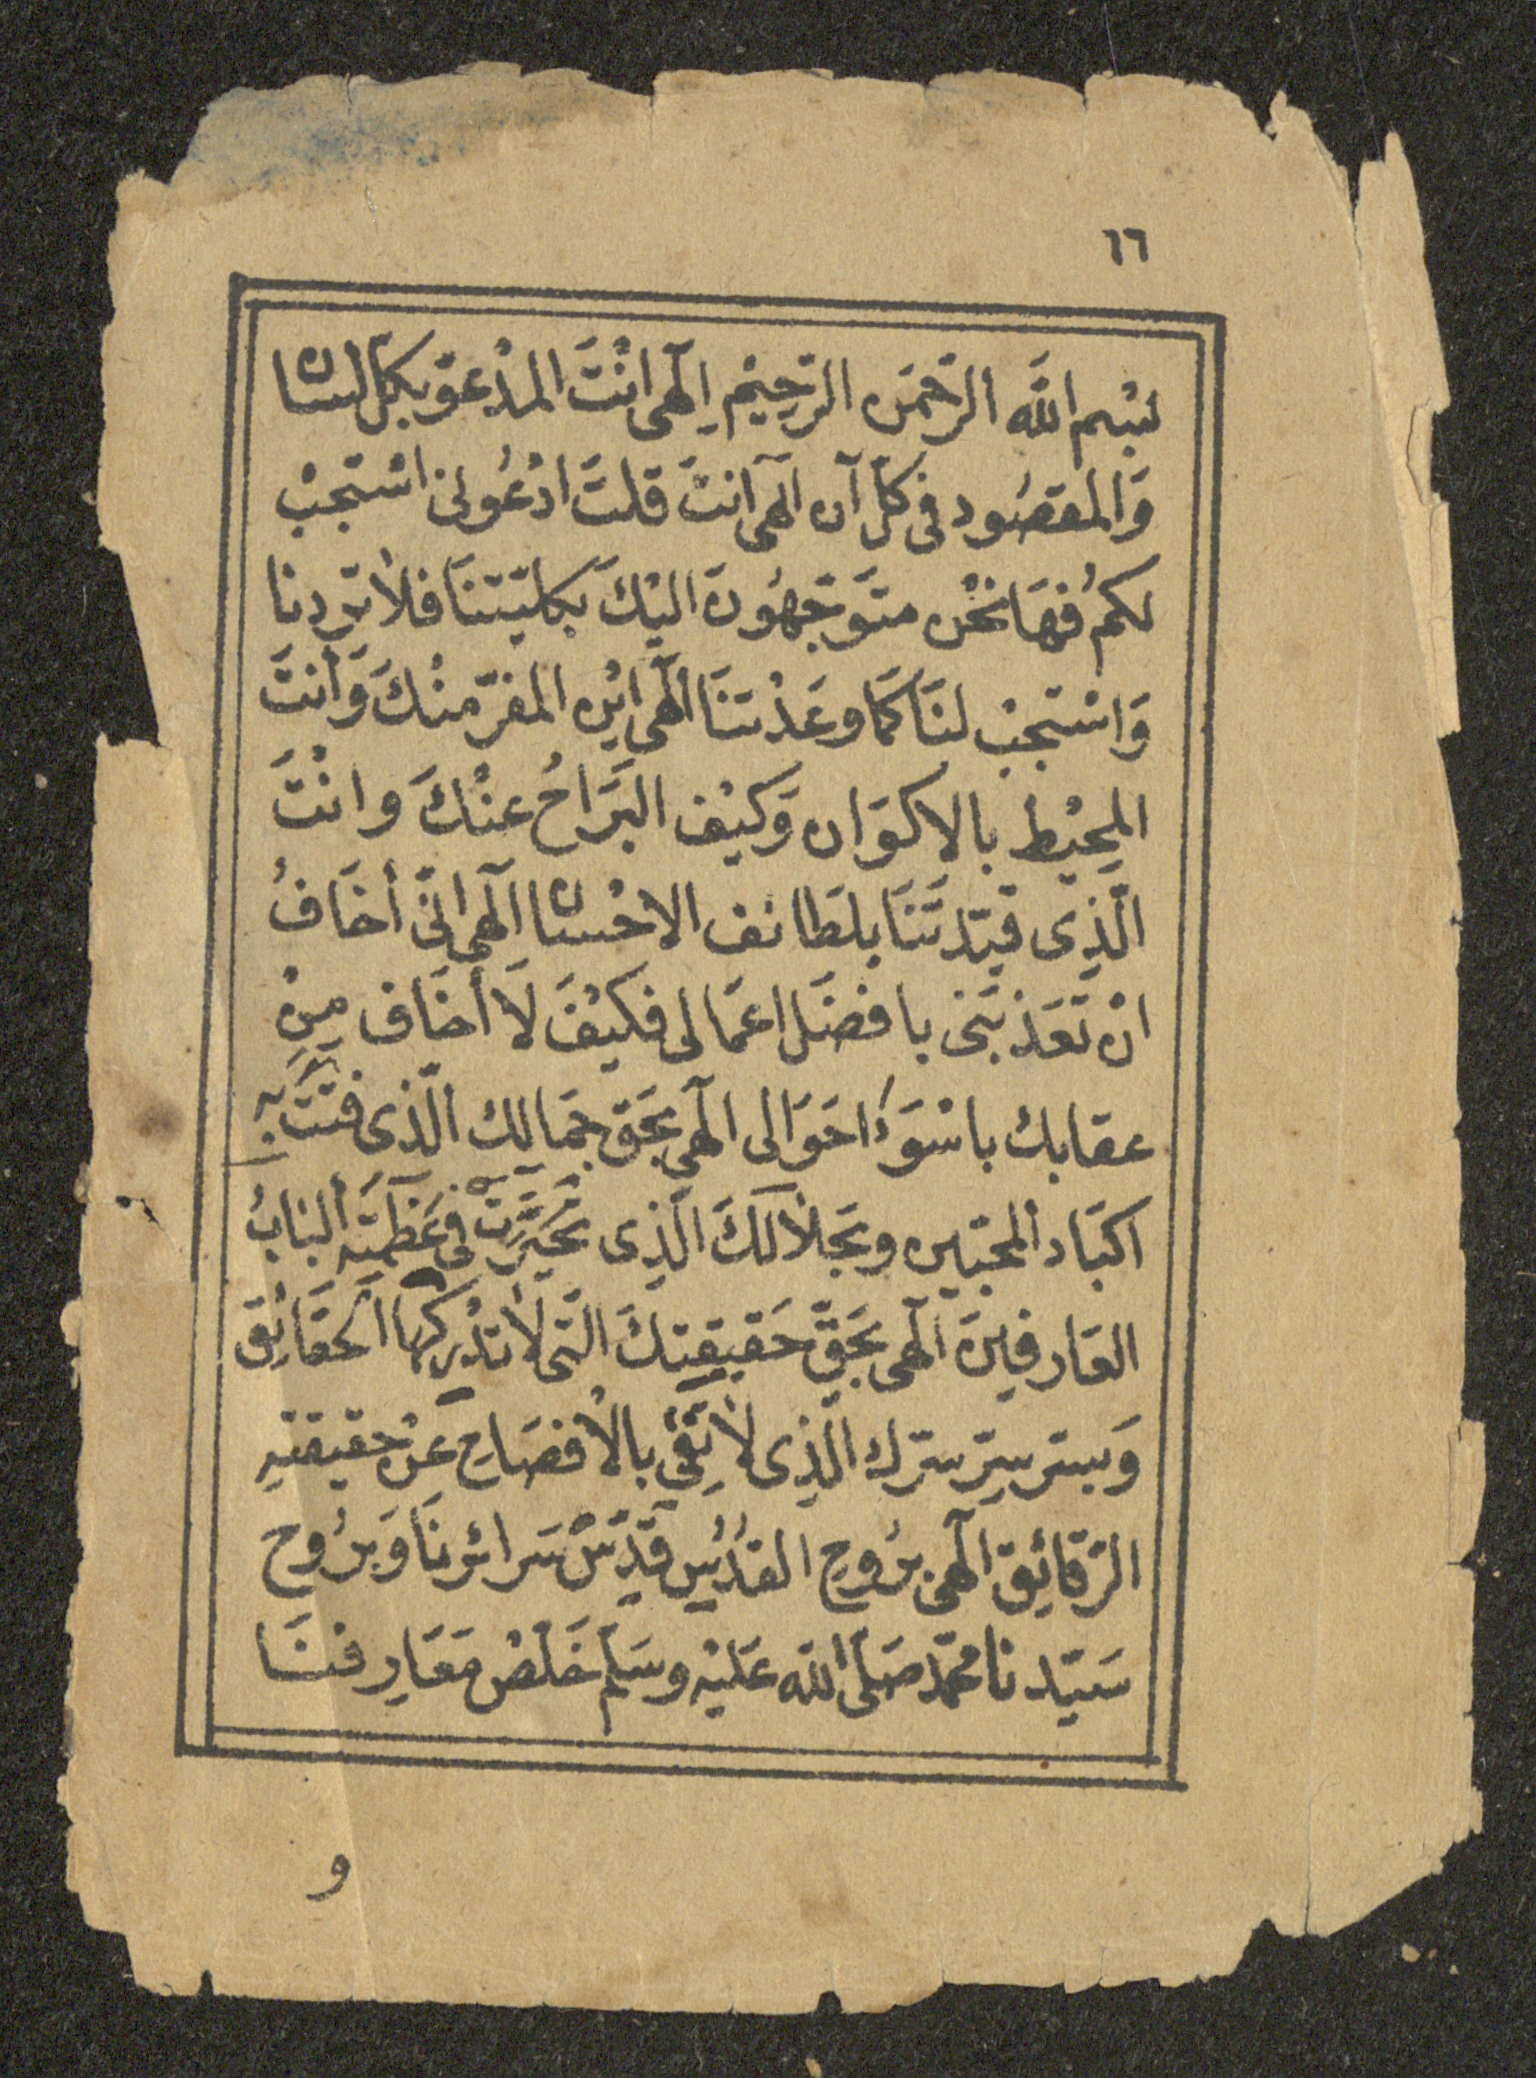 ١٦
بسْم اللّٰه الرّحمَن الرّحِيْم اِلٓهى انْتَ المدْعوّ بكلّ لسان
وَالمقصُود فى كلّ آن الٓهى انتَ قلتَ ادْعُونى استَجبْ
لكمُ فهَا نحْن متَوَجّهُونَ اليْكَ بكليّتنَا فلاَ تردنا
وَاسْتجبْ لنَا كمَا وعَدْتنَا الٓهى ايْن المفرّ منْكَ وَأنتَ
المحِيْط بالاكوَان وَكيْف البَرَاحُ عنْكَ وانْتَ
الّذِى قيّدتَنَا بلطَائف الاحْسان الٓهى انّى أخَافُ
انْ تَعَذبَنى بافضَل اعمَالى فكيْفَ لَا أخَاف مِنْ
عقابك باسْوَءِ احوَالى الٓهى بحَق جمَالك الّذى فتتَّ به
اكبَاد المحبّين وبجَلاَلكَ الّذِى تحيَّرَتْ فى عَظمَته ألبَابُ
العَارفِينَ الٓهى بحَقّ حَقيقتِكَ الّتى لاَ تدْركهَا الحَقَائِق
وَبسرِّ سِرّ سرّك الّذِى لاَ تَفى بالْافصَاحِ عنْ حقيقتهِ
الرّقائِق الٓهى برُوحِ القدُسِ قَدّسْ سَرائرنَا وَبرُوح
سَيّدنا محمّد صَلّى اللّٰه عَليْه وسَلم خَلّصْ مَعَارِفنَا
و